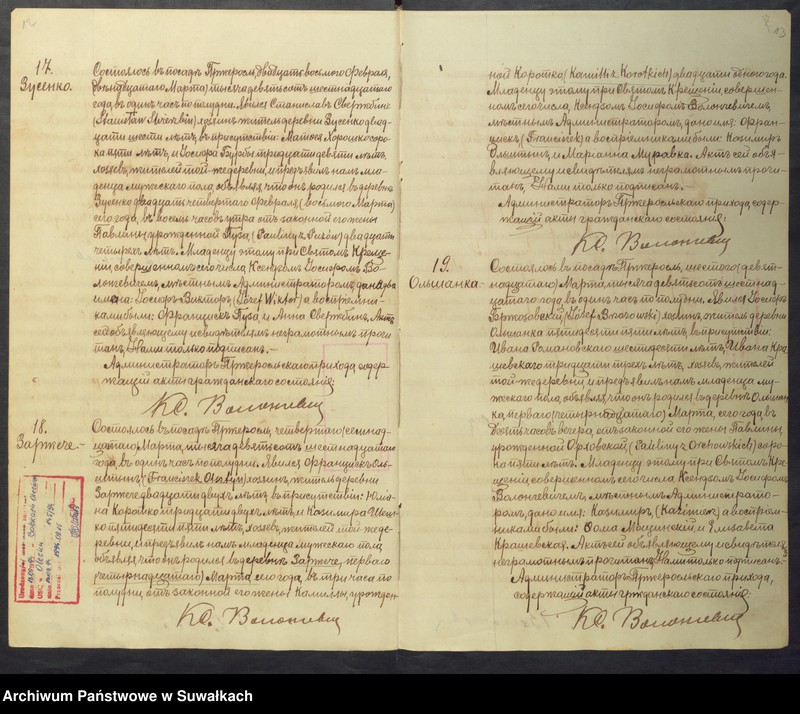 17.
Зусенко.
Состоялось въ посадѣ Пржеросли, двадцать восьмого Февраля,
(двѣнадцатаго Марта) тысяча девятьсотъ шестнадцатаго
года, въ одинъ часъ пополудни. Явился Станиславъ
(Stanisław) хозяинъ, житель деревни Зусенко двад-
цати шести лѣтъ, въ присутствіи: Матвея Хорошко соро-
ка пяти лѣтъ, и Іосифа тридцати девяти лѣтъ,
хозяевъ, жителей той-же деревни, и предъявилъ намъ мла-
денца мужескаго пола, объявляя, что онъ родился въ деревнѣ
Зусенко двадцать четвертаго Февраля, (восьмого Марта)
сего года, въ восемь часовъ утра отъ законной его жены
Павлины, урожденной Пуза, (Pauliny z Puzów) двадцати
четырехъ лѣтъ. Младенцу этому при Святомъ Креще-
ніи, совершенномъ сего числа Ксендзомъ Іосифомъ Во-
лонкевичемъ, мѣстнымъ Администраторомъ, даны два
имена: Іосифъ-Викторъ (Józef Wiktor) а воспріемни-
ками были: Францишекъ Пуза, и Анна Акт
сей объявляющему и свидѣтелямъ неграмотнымъ прочи-
танъ, Нами только подписанъ.-
Администраторъ Пржеросльскаго прихода, содер-
жащій акты гражданскаго состоянія:
Кс. Волонкевич
18.
Заржече.-
Состоялось въ посадѣ Пржеросли, четвертаго (семнад-
цатаго) Марта, тысяча девятьсотъ шестнадцатаго
года, въ одинъ часъ пополудни. Явился Францишекъ Оль-
(Franciszek) хозяинъ, житель деревни
Заржече двадцати двухъ лѣтъ, въ присутствіи: Юліа-
на Коротко тридцати двухъ лѣтъ, и Казимира
пятидесяти пяти лѣтъ, хозяевъ, жителей той-же де-
ревни, и предъявилъ намъ младенца мужескаго пола,
объявляя, что онъ родился въ деревнѣ Заржече, перваго
(четырнадцатаго) Марта, сего года, въ три часа по
полудни, отъ законной его жены Камиллы, урожден-
Кс. Волонкевич
ной Коротко, (Kamilli z Korotkich) двадцати одного года.
Младенцу этому при Святомъ Крещеніи, совершен-
номъ сего числа, Ксендзомъ Іосифомъ Волонкевичемъ,
мѣстнымъ Администраторомъ, дано имя: Фран-
цишекъ, (Franciszek) а воспріемниками были: Казимиръ
и Марианна Муравка. Актъ сей объя-
вляющему и свидѣтелямъ неграмотнымъ прочи-
танъ, Нами только подписанъ.-
Администраторъ Пржеросльскаго прихода, содер-
жащій акты гражданскаго состоянія:
Кс. Волонкевич
19.
Ольшанка.-
Состоялось въ посадѣ Пржеросль, шестого (девят-
надцатаго) Марта, тысяча девятьсотъ шестнад-
цатаго года, въ одинъ часъ пополудни. Явился Іосифъ
Бржозовскій (Józef Brzozowski) хозяинъ, житель деревни
Ольшанка пятидесяти пяти лѣтъ, въ присутствіи:
Ивана Романовскаго шестидесяти лѣтъ, и Ивана Кра-
шевскаго тридцати трехъ лѣтъ, хозяевъ, жителей
той-же деревни, и предъявилъ намъ младенца му-
жескаго пола, объявляя, что онъ родился въ деревнѣ Ольшан-
ка, перваго (четырнадцатаго) Марта, сего года, въ
часовъ вечера, отъ законной его жены Павлины,
урожденной Орховской, (Pauliny z Orchowskich) соро-
ка пяти лѣтъ. Младенцу этому при Святомъ Кре-
щеніи, совершенномъ сего числа, Ксендзомъ Іосифомъ
Волонкевичемъ, мѣстнымъ Администрато-
ромъ, дано имя: Казимиръ, (Kazimierz) а воспріем-
никами были: Ѳома и Елизавета
Крашевская. Актъ сей объявляющему и свидѣтелямъ
неграмотнымъ прочитанъ, Нами только подписанъ.-
Администраторъ Пржеросльскаго прихода,
содержащій акты гражданскаго состоянія:
Кс. Волонкевич
Archiwum Państwowe w Suwałkach